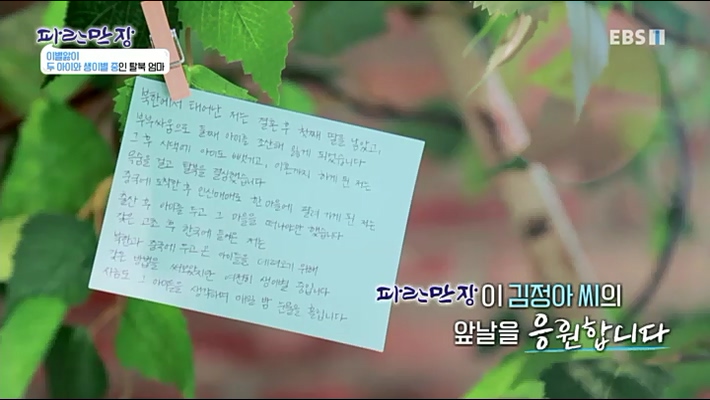 파란만장
EBS1
이별앓이
두 아이와 생이별 중인 탈북 엄마
북한에서 태어난 저는 결혼 후 첫째 딸을 낳았고,
부부싸움으로 둘째 아이를 조산해 잃게 되었습니다
그 후 시댁에 아이도 뺏기고, 이혼까지 하게 된 저는
목숨을 걸고 탈북을 결심했습니다
중국에 도착한 후 인신매매로 한 마을에 팔려 가게 된 저는
출산 후 아이를 두고 그 마을을 떠나야만 했습니다
갖은 고초 후 한국에 들어온 저는
북한과 중국에 두고 온 아이들을 데려오기 위해
갖은 방법을 써보았지만 여전히 생이별 중입니다
사는 그 아이들을 생각하며 매일 밤 눈물을 흘립니다
파란만장이 김정아 씨의
앞날을 응원합니다